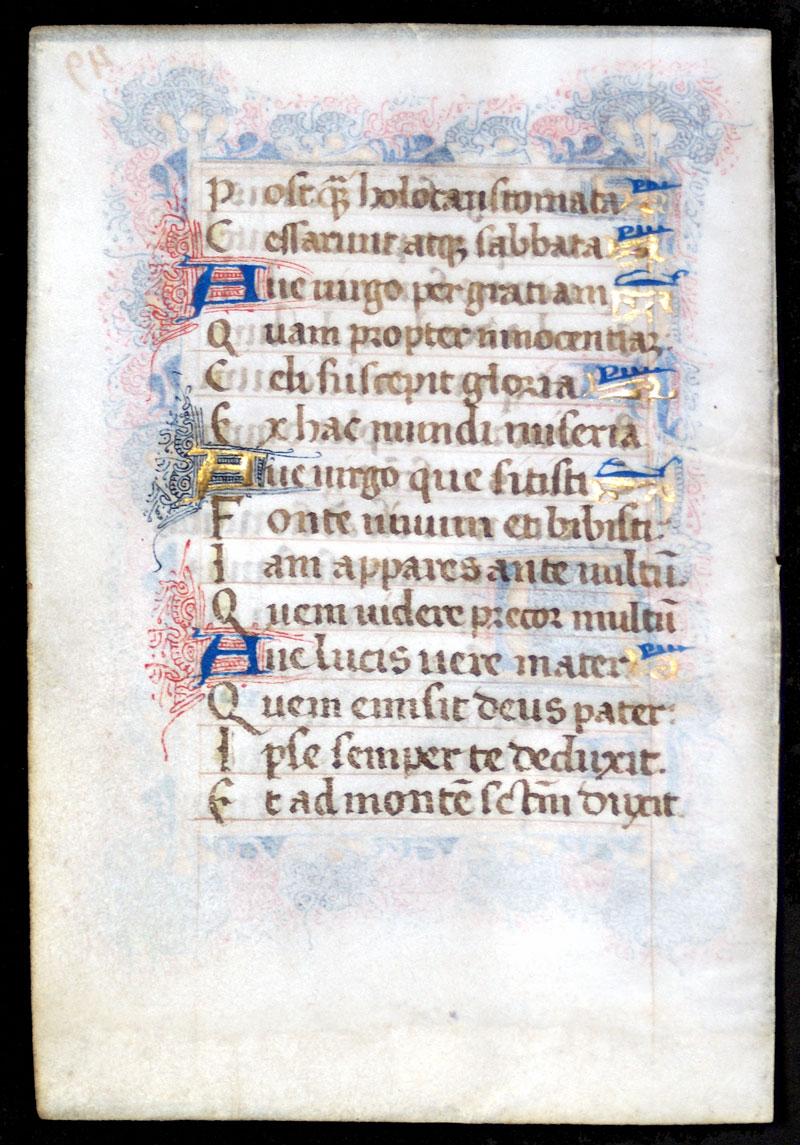 Post qȝ holocaustomata
Cessarunt atqȝ sabbata
Aue uirgo per gratiam
Quam propter innocentiaȝ.
Celi suscepit gloria
Ex hac mundi miseria
Aue uirgo que sitisti
Fonte uiuum et bibisti:
Iam appares ante uultū.
Quem uidere precor multū
Aue lucis uere mater
Quem emisit deus pater:
Ipse semper te deduxit.
Et ad montē sc̄tm̄ duxit